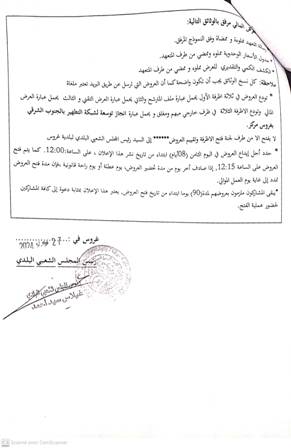 العرض المالي مرفق بالوثائق التالية:
رسالة التعهد مملوءة و ممضاة وفق النموذج المرفق.
جدول الأسعار الوحدوية مملوء وممضي من طرف المتعهد.
الكشف الكمي والتقديري للعرض مملوء و ممضي من طرف المتعهد
ملاحظة: كل نسخ الوثائق يجب أن تكون واضحة كما أن العروض التي ترسل عن طريق البريد تعتبر ملغاة
* تودع العروض في ثلاثة اظرفة الأول يحمل عبارة ملف الترشح والثاني يحمل عبارة العرض التقني و الثالث يحمل عبارة العرض
المالي وتوضع الاظرفة الثلاثة في ظرف خارجي مبهم ومغلق و يحمل عبارة انجاز توسعة لشبكة التطهير بالجنوب الشرقي
بغروس مركز.
لا يفتح الا من طرف لجنة فتح الاظرفة وتقييم العروض****** إلى السيد رئيس المجلس الشعبي لبلدية غروس
* حدد أجل إيداع العروض في اليوم الثامن (08)يوم ابتداء من تاريخ نشر هذا الإعلان ، على الساعة:12:00. كما يتم فتح
العروض على الساعة 12:15. إذا صادف آخر يوم من مدة تحضير العروض، يوم عطلة أو يوم راحة قانونية ،فإن مدة فتح العروض
تمدد إلى غاية يوم العمل الموالي.
*يبقى المشاركون ملزمون بعروضهم لمدة(90) يوما ابتداء من تاريخ فتح العروض. يعتبر هذا الإعلان بمثابة دعوة إلى كافة المشاركين
لحضور عملية الفتح.
غروس في : 27
رئيس المجلس الشعبي البلدي
رئيس المجلس الشعبي البلدي
Scanned with CamScanner